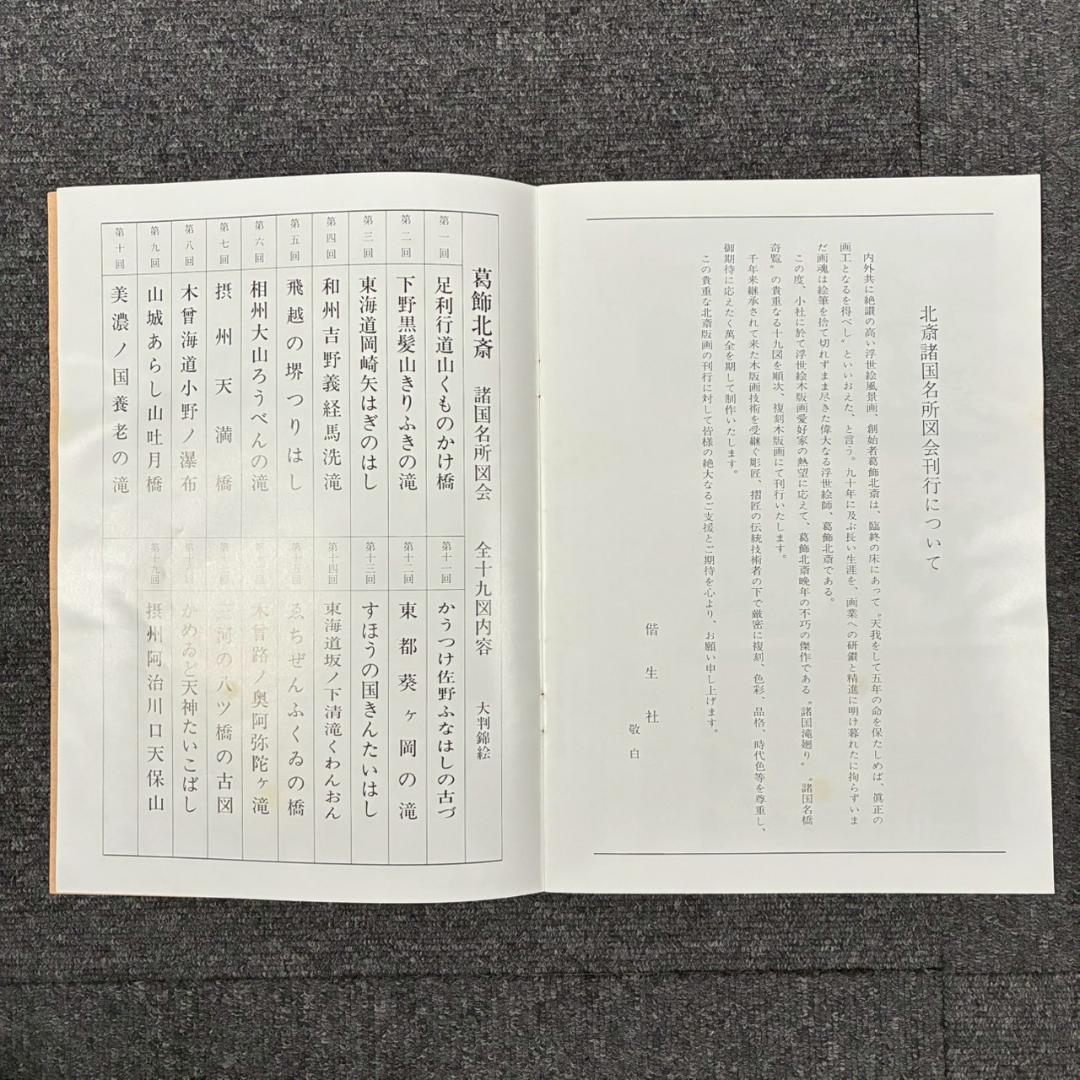 北斎諸国名所図会刊行について
内外共に絶讃の高い浮世絵風景画、創始者葛飾北斎は、臨終の床にあって〝天我をして五年の命を保たしめば、眞正の
画工となるを得べし〟といいおえた、と言う。九十年に及ぶ長い生涯を、画業への研鑽と精進に明け暮れたに拘らずいま
だ画魂は絵筆を捨て切れずまま尽きた偉大なる浮世絵師、葛飾北斎である。
この度、小社に於て浮世絵木版画愛好家の熱望に応えて、葛飾北斎晩年の不巧の傑作である〝諸国滝廻り〟〝諸国名橋
奇覧〟の貴重なる十九図を順次、複刻木版画にて刊行いたします。
千年来継承されて来た木版画技術を受継ぐ彫匠、摺匠の伝統技術者の下で厳密に複刻、色彩、品格、時代色等を尊重し、
御期待に応えたく萬全を期して制作いたします。
この貴重な北斎版画の刊行に対して皆様の絶大なるご支援とご期待を心より、お願い申し上げます。
偕生社
敬白
葛飾北斎 諸国名所図会 全十九図内容 大判錦絵
第一回 足利行道山くものかけ橋
第二回 下野黒髪山きりふきの滝
第三回 東海道岡崎矢はぎのはし
第四回 和州吉野義経馬洗滝
第五回 飛越の堺つりはし
第六回 相州大山ろうべんの滝
第七回 摂州天満橋
第八回 木曾海道小野ノ瀑布
第九回 山城あらし山吐月橋
第十回 美濃ノ国養老の滝
第十一回 かうつけ佐野ふなはしの古づ
第十二回 東都葵ヶ岡の滝
第十三回 すほうの国きんたいはし
第十四回 東海道坂ノ下清滝くわんおん
第十五回 ゑちぜんふくゐの橋
木曾路ノ奥阿弥陀ヶ滝
三河の八ツ橋の古図
かめゐど天神たいこばし
第十九回 摂州阿治川口天保山